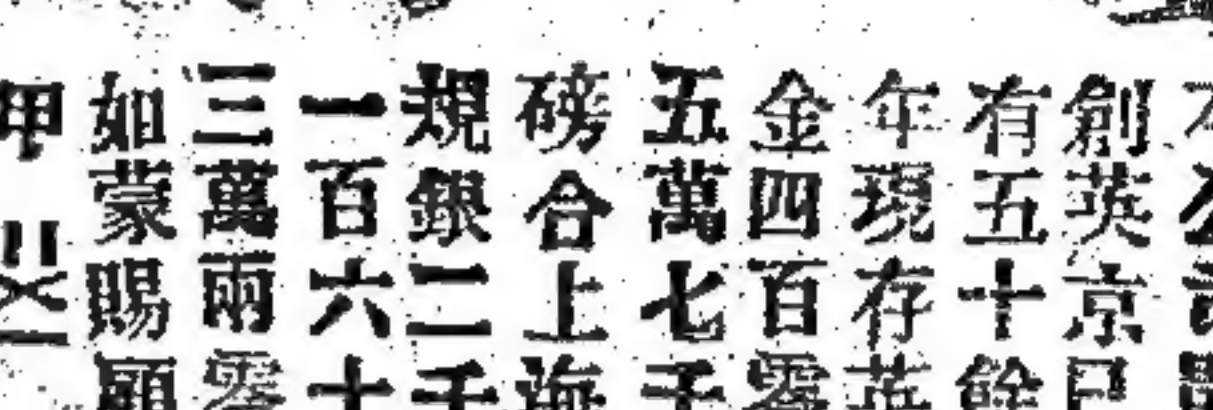 創英京已
有五十餘
年現存英
金四百零
五萬七千
磅合上海
規銀二千
一百六十
三萬兩零
如蒙賜顧